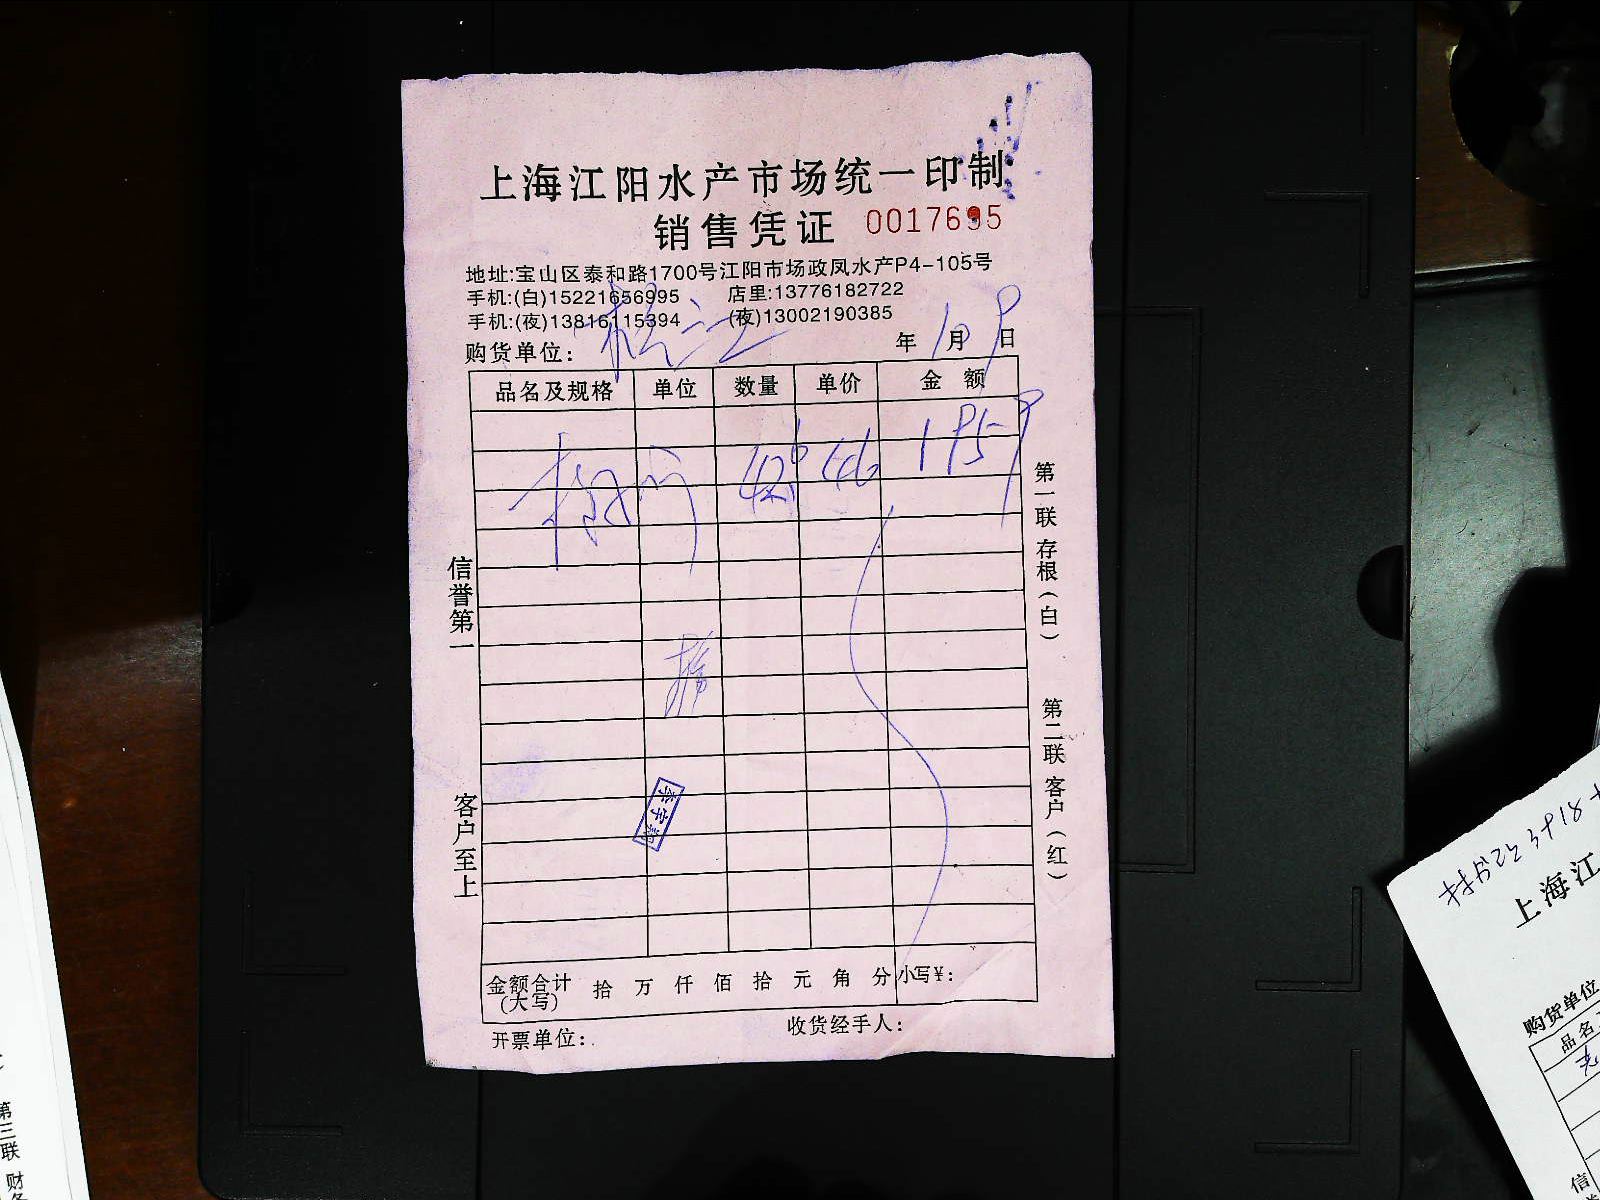 上海江阳水产市场统一印制
销售凭证 0017695
地址:宝山区泰和路1700号江阳市场政凤水产P4-105号
手机:(白)15221656995 店里:13776182722
手机:(夜)13816115394 (夜)13002190385
购货单位: 松江 年 10 月 9 日
品名及规格 单位 数量 单价 金额
46 1959
信誉第一
客户至上
第一联 存根(白)
第二联 客户(红)
金额合计(大写) 拾 万 仟 佰 拾 元 角 分 小写¥:
开票单位: 收货经手人:
上海江
购货单位
品名
第三联 财务